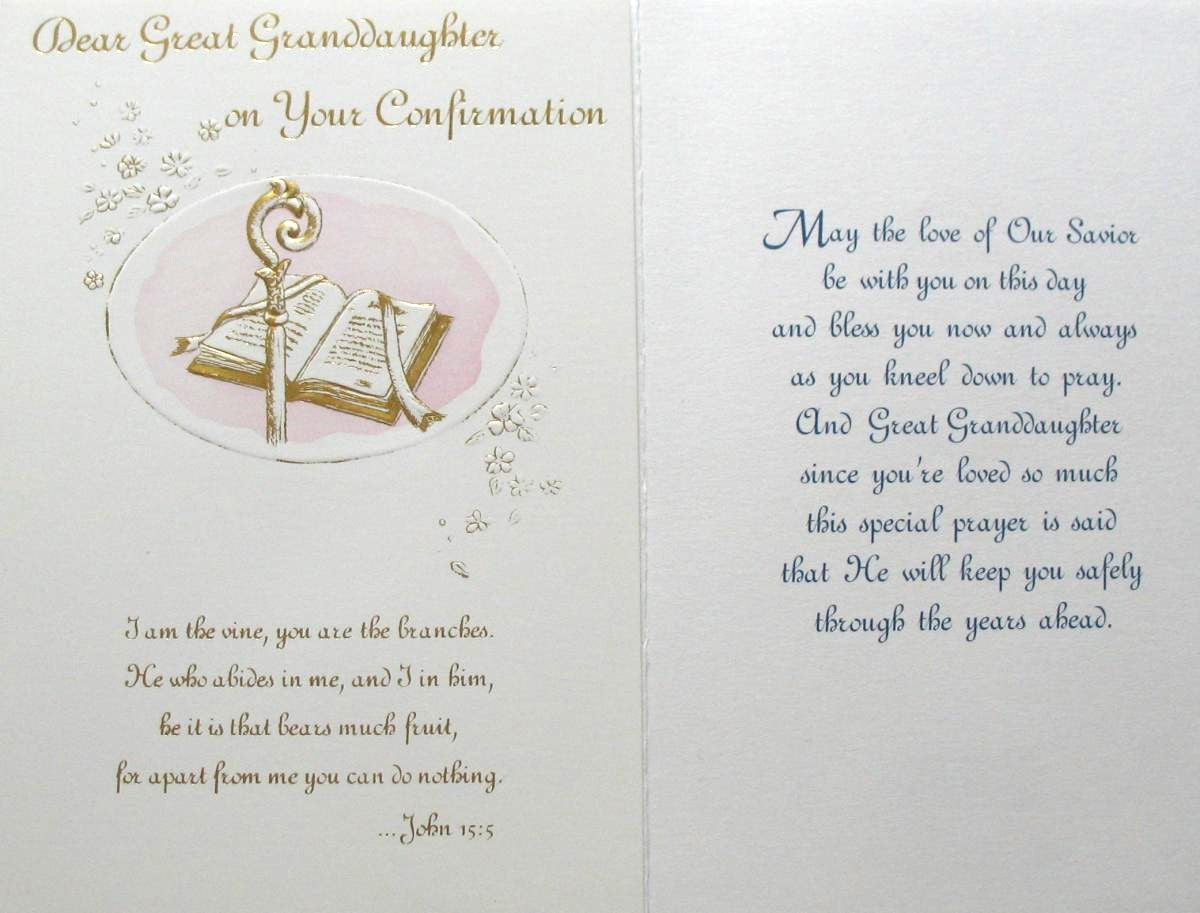 Dear Great Granddaughter
on Your Confirmation
I am the vine, you are the branches.
He who abides in me, and I in him,
he it is that bears much fruit,
for apart from me you can do nothing.
...John 15:5
May the love of Our Savior
be with you on this day
and bless you now and always
as you kneel down to pray.
And Great Granddaughter
since you're loved so much
this special prayer is said
that He will keep you safely
through the years ahead.